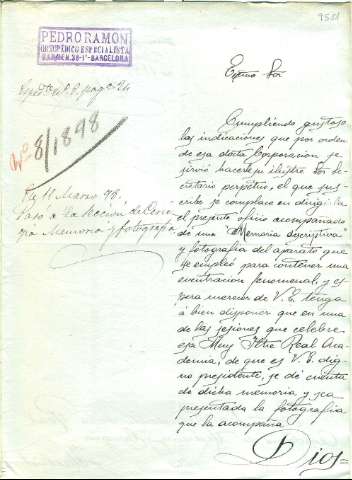 9501
PEDRO RAMON
ORTOPÉDICO ESPECIALISTA
CARMEN, 38-1º-BARCELONA
Exmo Sor
Nº 8/1898
Rg 11 Marzo 98.
Pasó a la Seccion de
Memoria y fotografía
Cumpliendo gustoso
las indicaciones que por orden
de esa docta Corporacion se
sirvió hacerle su ilustre Sor Se-
cretario perpétuo, el que sus-
cribe se complace en dirigirle
el presente oficio acompañado
de una "Memoria descriptiva"
y fotografía del aparato que
se empleó para contener una
eventracion fenomenal, y es-
pera merecer de V.E. tenga
á bien disponer que en una
de las sesiones que celebre
esa Muy Iltre Real Aca-
demia, de que es V.E. dig-
no presidente, se dé cuenta
de dicha memoria y sea
presentada la fotografía
que la acompaña.
Dios=